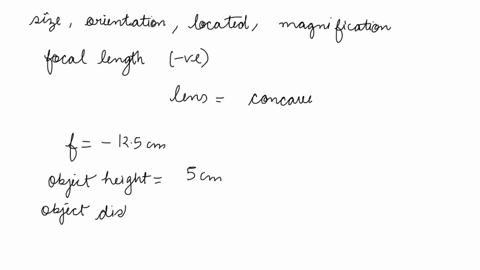 size, orientation, located, magnification
focal length (-ve)
lens = concave
f = - 12.5 cm
object height = 5 cm
object dis